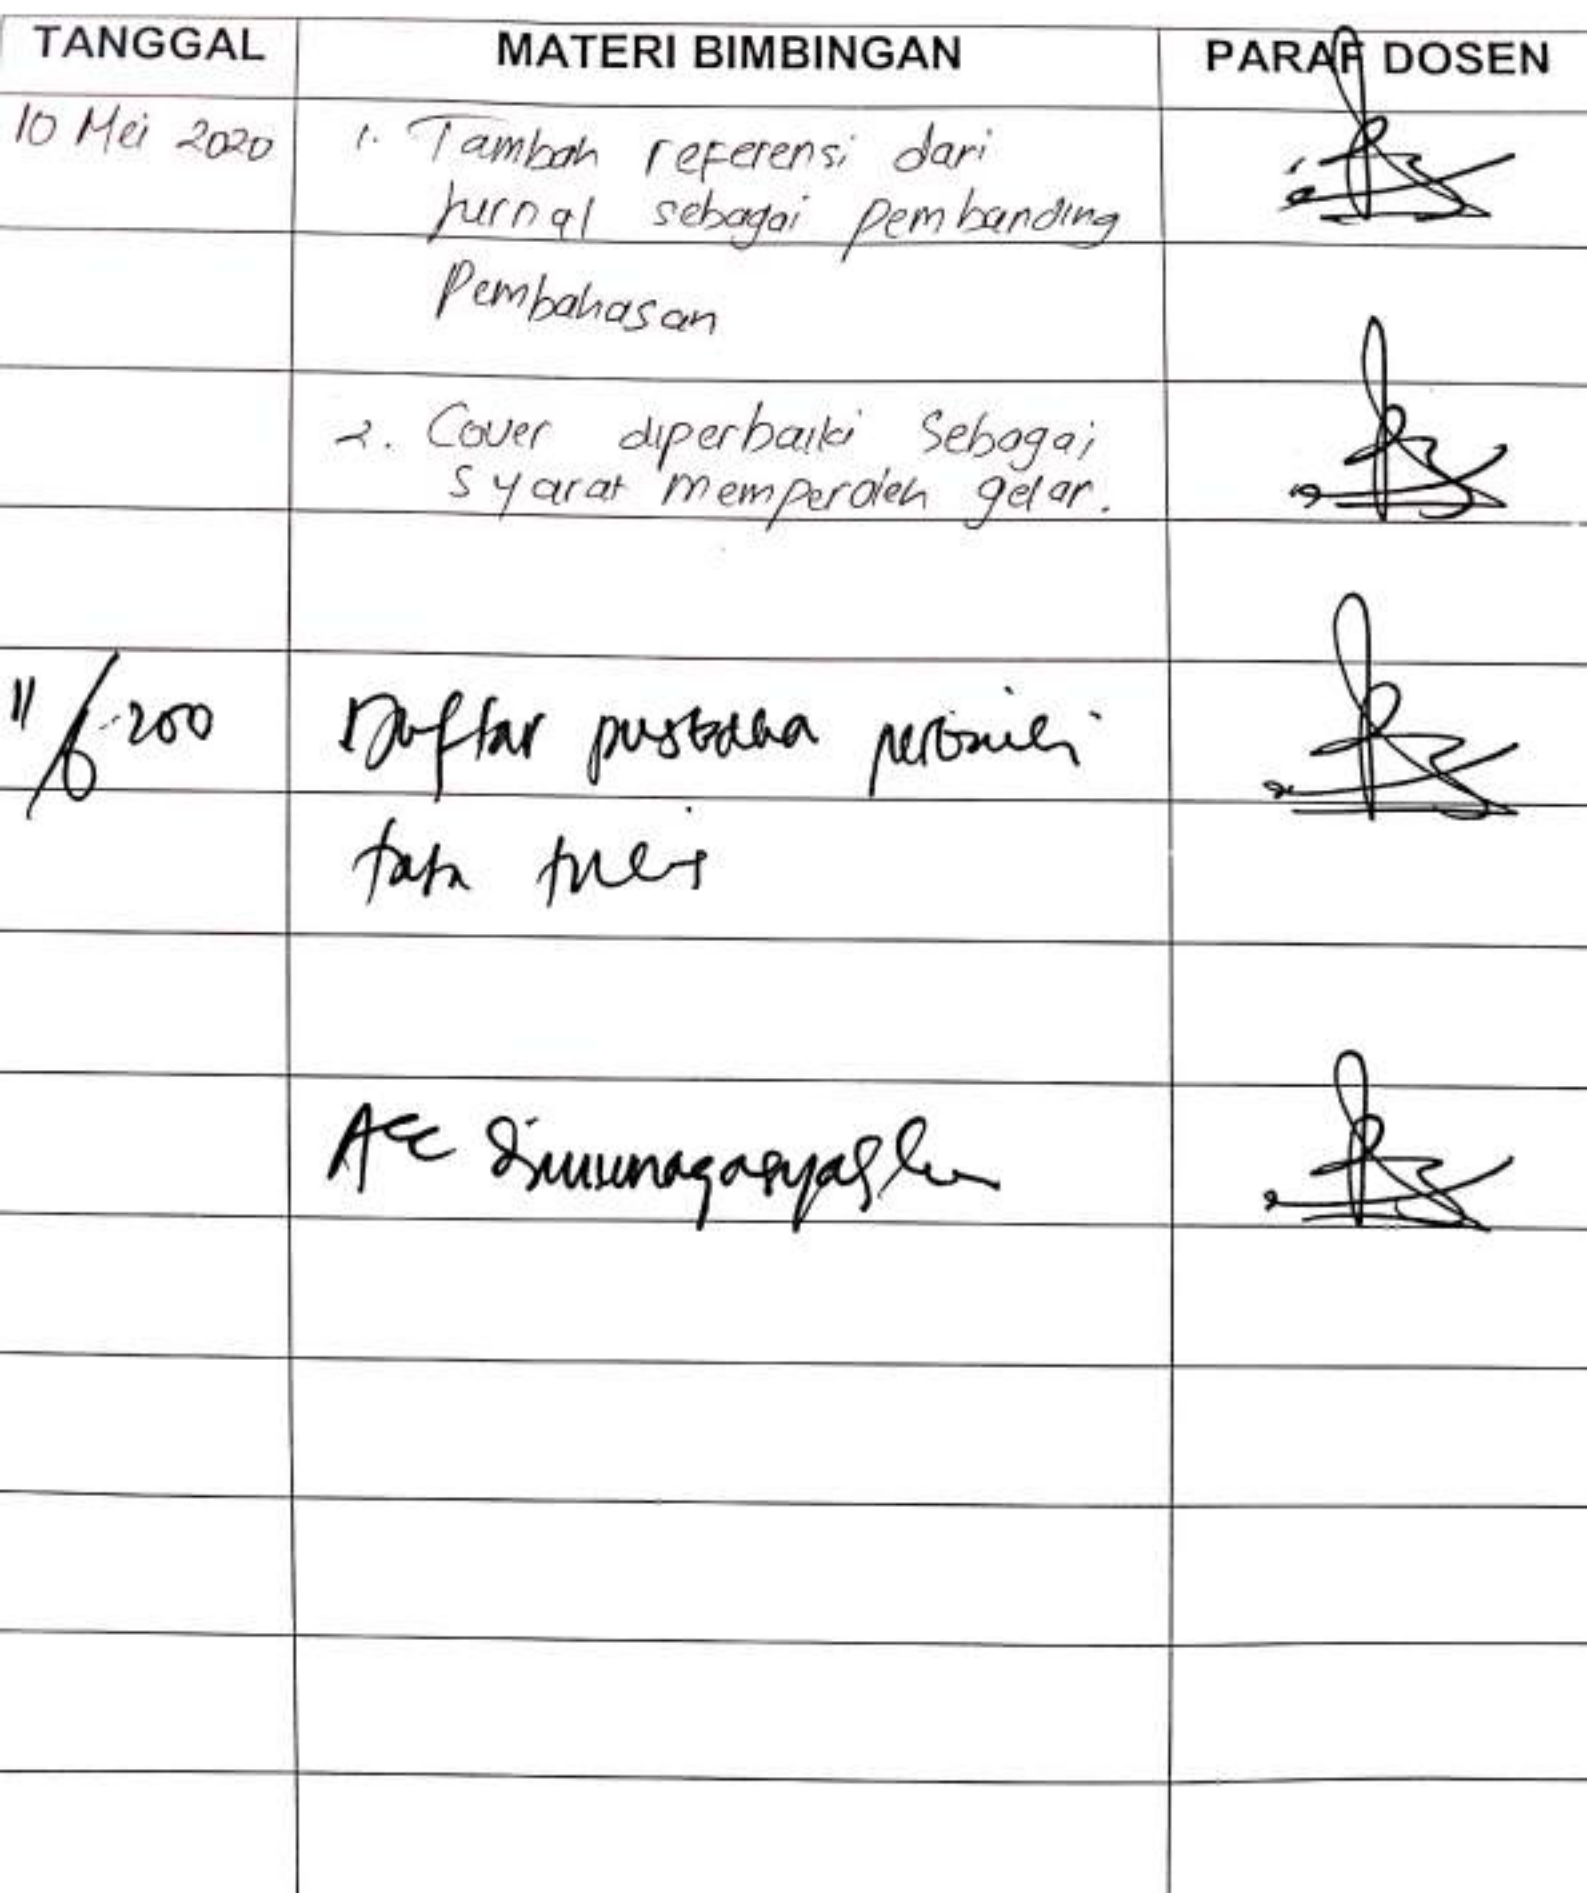 TANGGAL MATERI BIMBINGAN PARAF DOSEN
10 Mei 2020 1. Tambah referensi dari
jurnal sebagai pembanding
Pembahasan
2. Cover diperbaiki Sebagai
syarat memperoleh gelar.
11/6-200 Daftar pustaka perbaiki
tata tulis
Acc